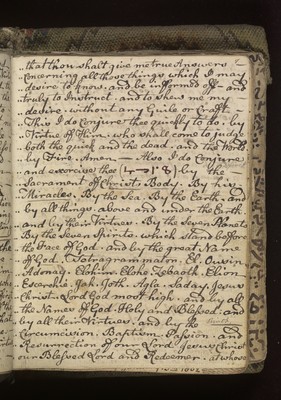 that thou shalt give me true Answers
Concerning all those things which I may
desire to know, and be informed off - and
truly to Instruct, and to shew me my
desire without any Guile or Craft
This I do Conjure thee quickly to do, by
Virtue of Him, who shall come to judge
both the quick and the dead, and the World
by Fire. Amen — Also I do Conjure
and exorcise thee by the
Sacrament off Christs Body. By his
Miracles. By the Sea. By the Earth, and
by all things, above and under the Earth
and by their Virtues. By the Seven Planets
By the Seven Spirits, which Stand before
the Face of God, and by the great Name
off God. Tetragrammaton. El. Ouvin
Adonay. Elohim. Elohe. Zebaoth. Elion
Escerchie. Jah. Goth. Agla. Saday. Jesus
Christ. Lord God most high, and by all
the Names off God. Holy and Blessed. and
by all their Virtues. and by the
Circumcision. Baptism. Passion. and
Resurrection of our Lord Jesus Christ
our Blessed Lord and Redeemer. at whose